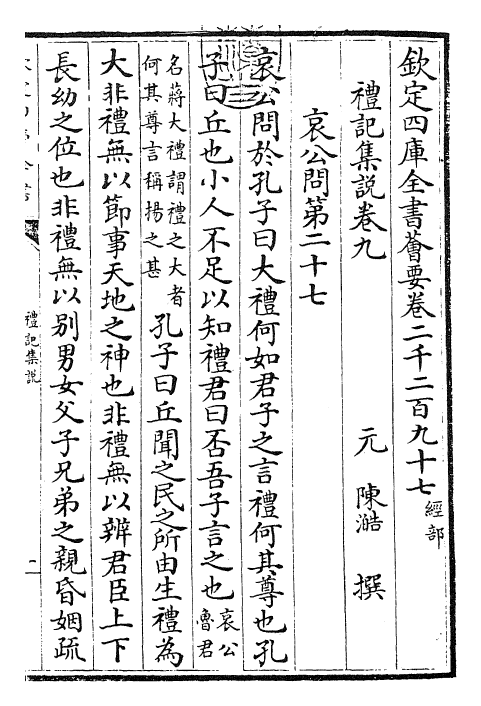 欽定四庫全書薈要卷二千二百九十七經部
禮記集説卷九
元 陳澔 撰
哀公問第二十七
哀公問於孔子曰大禮何如君子之言禮何其尊也孔
子曰丘也小人不足以知禮君曰否吾子言之也哀公魯君
名蔣大禮謂禮之大者何其尊言稱揚之甚孔子曰丘聞之民之所由生禮為
大非禮無以節事天地之神也非禮無以辨君臣上下
長幼之位也非禮無以别男女父子兄弟之親昏姻疏
禮記集説